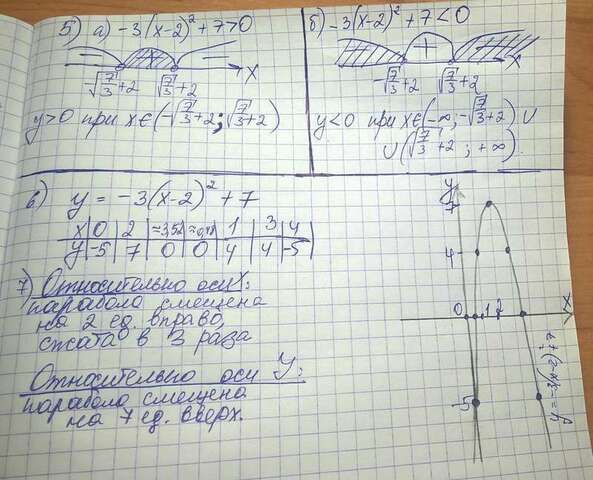 5) а) -3(x-2)²+7>0
x
-√7/3+2 √7/3+2
y>0 при x∈(-√7/3+2; √7/3+2)
б) -3(x-2)²+7<0
x
-√7/3+2 √7/3+2
y<0 при x∈(-∞; -√7/3+2) ∪
∪(√7/3+2; +∞)
6) y = -3(x-2)²+7
x 0 2 ≈3,52 1 3 4
y -5 7 0 0 4 4 -5
7) Относительно оси X:
парабола смещена
на 2 ед. вправо,
сжата в 3 раза
Относительно оси Y:
парабола смещена
на 7 ед. вверх.
y
7
4
0 1 2
x
-5
y=-3(x-2)²+7